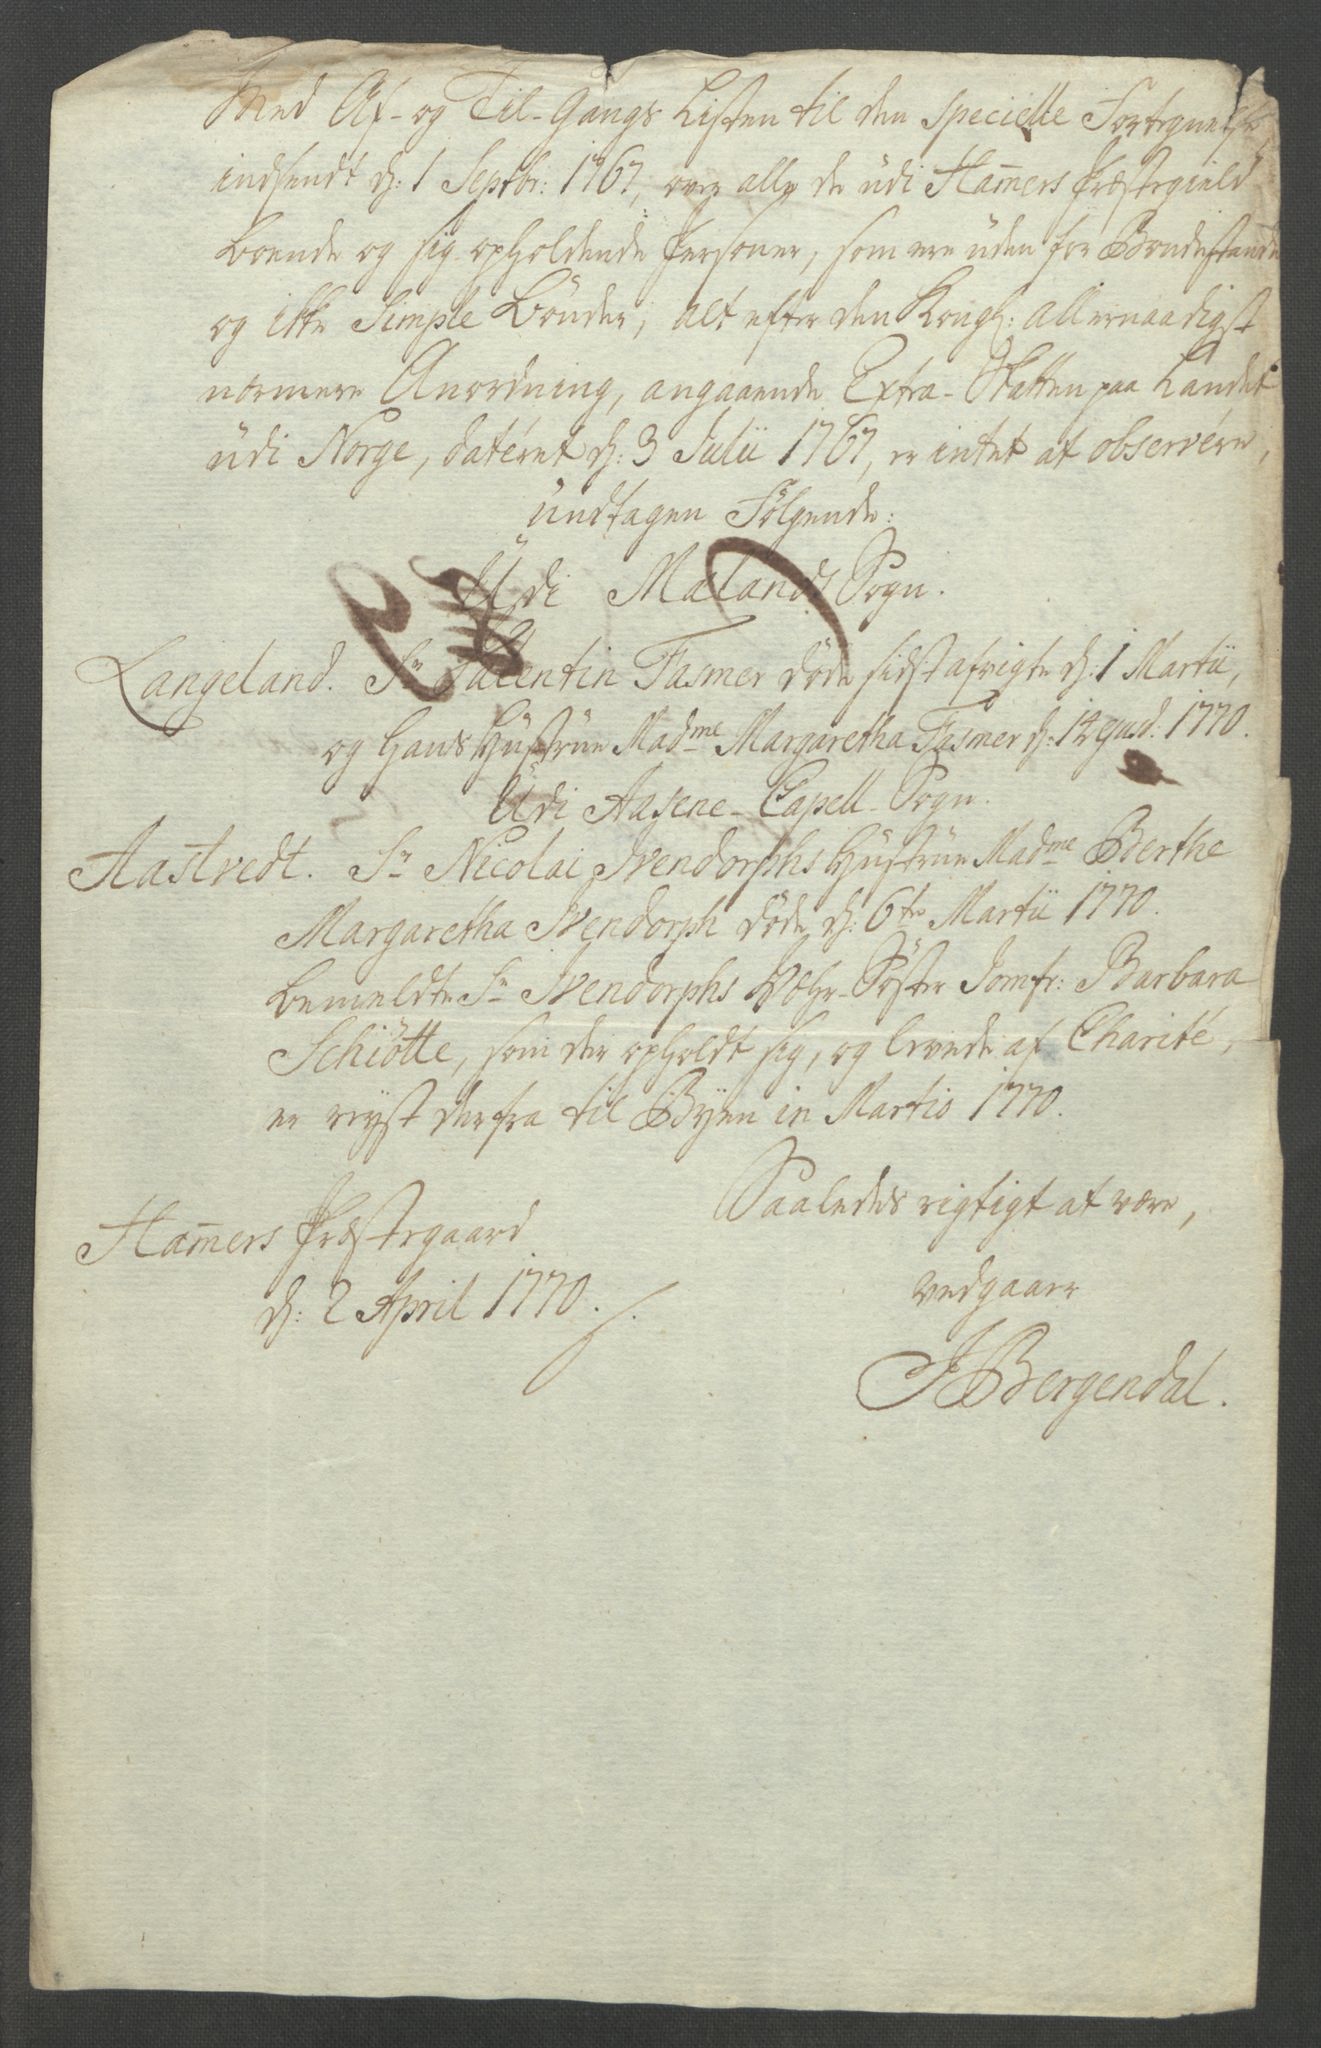 Med Af- og Til-Gangs Listen til den Specielle Fortegnelse
indsendt d: 1 Septbr: 1767, over alle de üdi Ham̄ers Præstegield
boende og sig opholdende Personer, som ere uden for Bondestanden
og ikke Simple Bönder, alt efter den Kongl: allernaadigst
nærmere Anordning, angaaende Extra-Skatten paa Landet
üdi Norge, datéret d: 3 Julii 1767, er intet at observére,
undtagen Fölgende:
Üdi Malands Sogn.
Langeland. Sr Valentin Fasmer döde sidstafvigte d: 1 Martii,
og hans Hüstrüe Madme Margaretha Fasmer d: 14 ejusd. 1770.
Üdi Aasene-Capell-Sogn.
Aastvedt. Sr Nicolai Wendorphs Hüstrüe Madme Berthe
Margaretha Wendorph döde d: 6te Martii 1770.
bemeldte Sr Wendorphs Söster Jomfr: Barbara
Schiötte, som der opholdt sig, og levede af Charité,
er reyst derfra til Byen in Martio 1770.
Saaledes rigtigt at være,
Ham̄ers Præstegaard
vedgaaer
d: 2 April 1770.
J Bergendal.